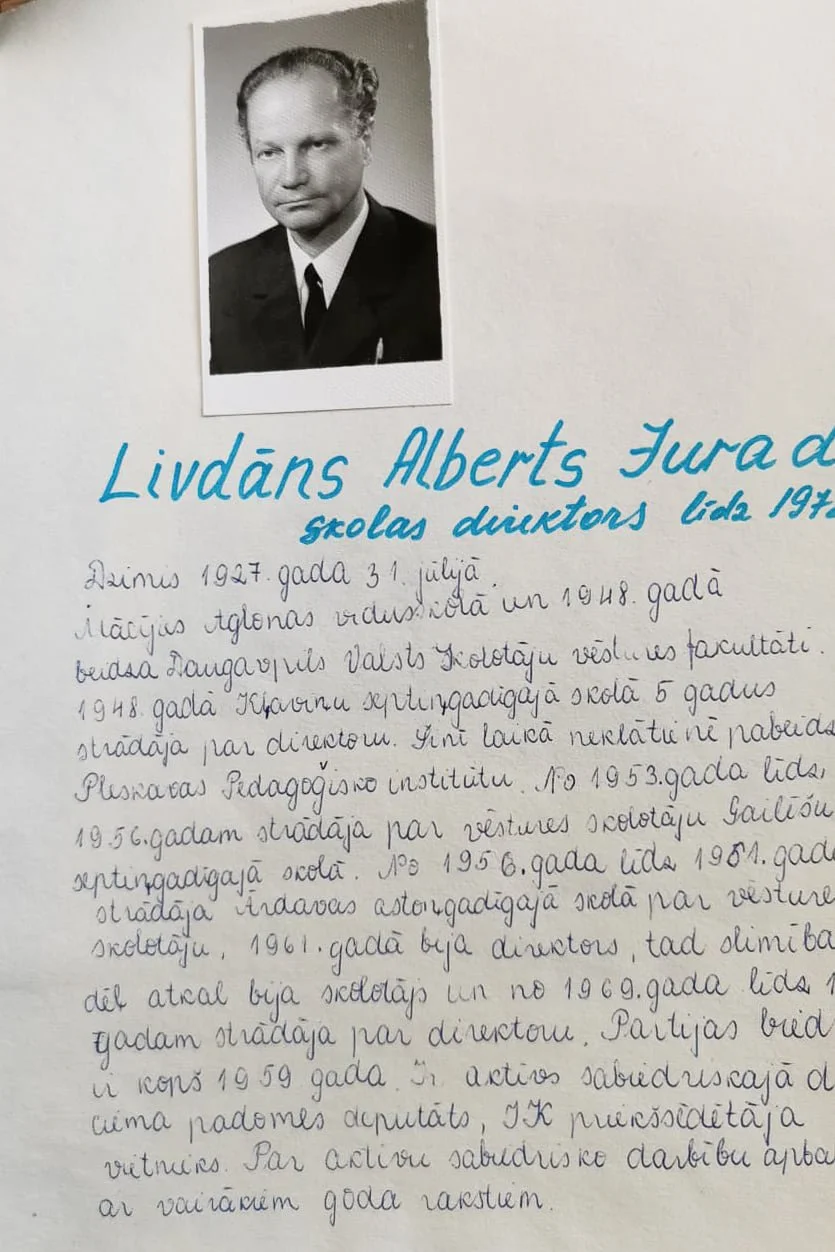 Livdāns Alberts Jura d
skolas direktors līdz 197
Dzimis 1927. gada 31. jūlijā.
Mācījies Aglonas vidusskolā un 1948. gadā
beidza Daugavpils Valsts Skolotāju vēstures fakultāti.
1948. gadā Kļaviņu septiņgadīgajā skolā 5 gadus
strādāja par direktoru. Šinī laikā neklātienē pabeidz
Pleskavas Pedagoģisko institūtu. No 1953. gada līdz
1956. gadam strādāja par vēstures skolotāju Gailīšu
septiņgadīgajā skolā. No 1956. gada līdz 1981. gada
strādāja Ārdavas astoņgadīgajā skolā par vēsture
skolotāju, 1961. gadā bija direktors, tad slimība
dēļ atkal bija skolotājs un no 1969. gada līdz 1
gadam strādāja par direktoru. Partijas bied
ir kopš 1959 gada. Ir aktīvs sabiedriskajā d
ciema padomes deputāts, IK priekšsēdētāja
vietnieks. Par aktīvu sabiedrisko darbību apba
ar vairākiem goda rakstiem.